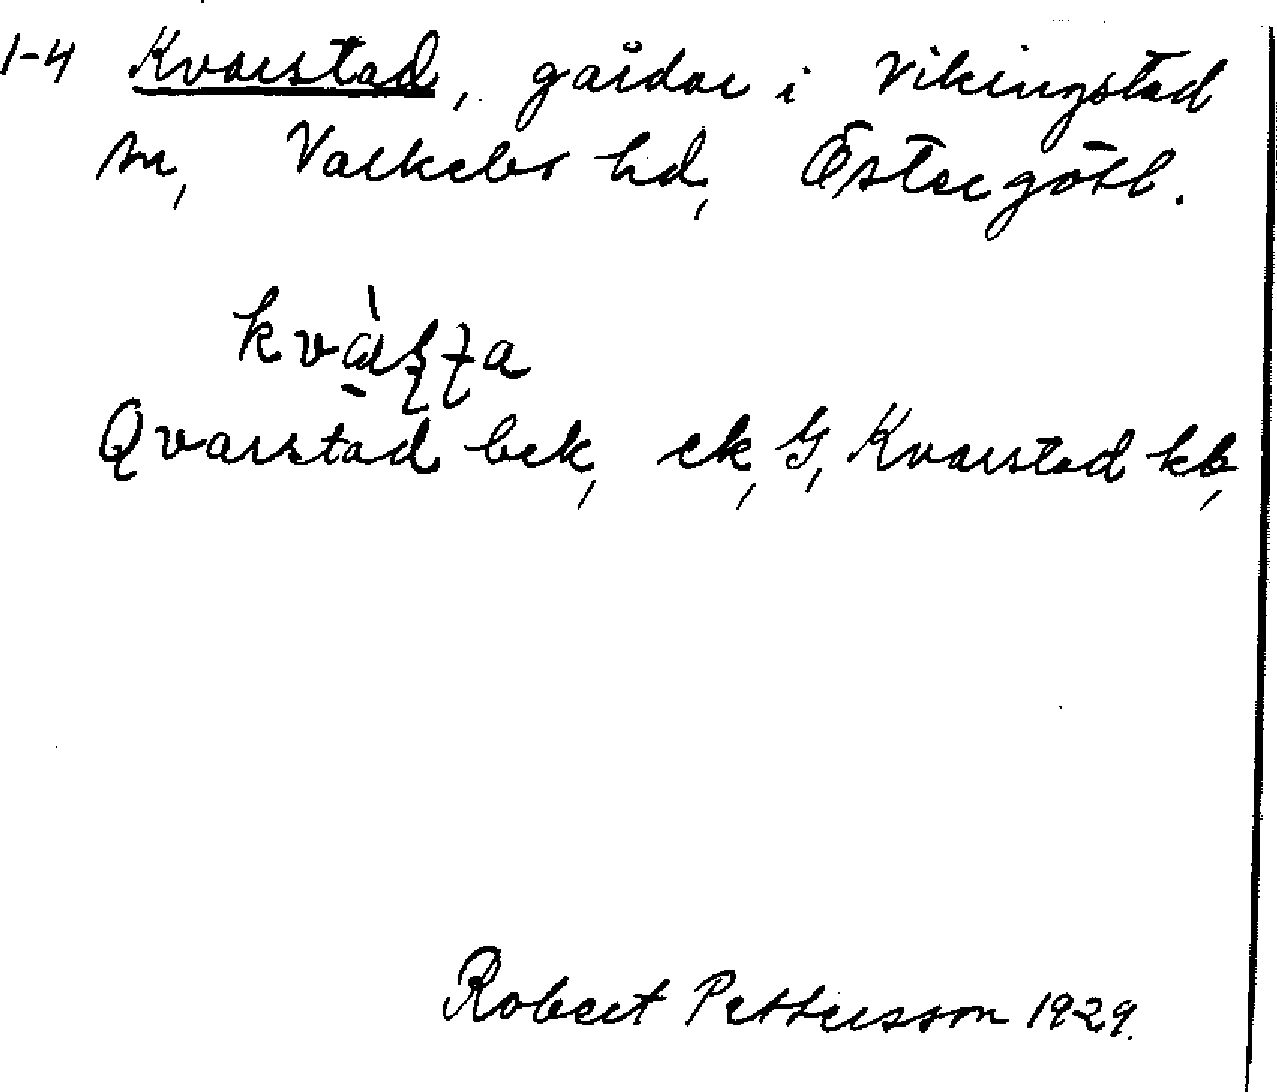 1-4 Kvarstad, gårdar i Vikingstad
sn, Valkebo hd, Östergötl.
Qvarstad bek, ek, G, Kvarstad kb,
Robert Pettersson 1929.